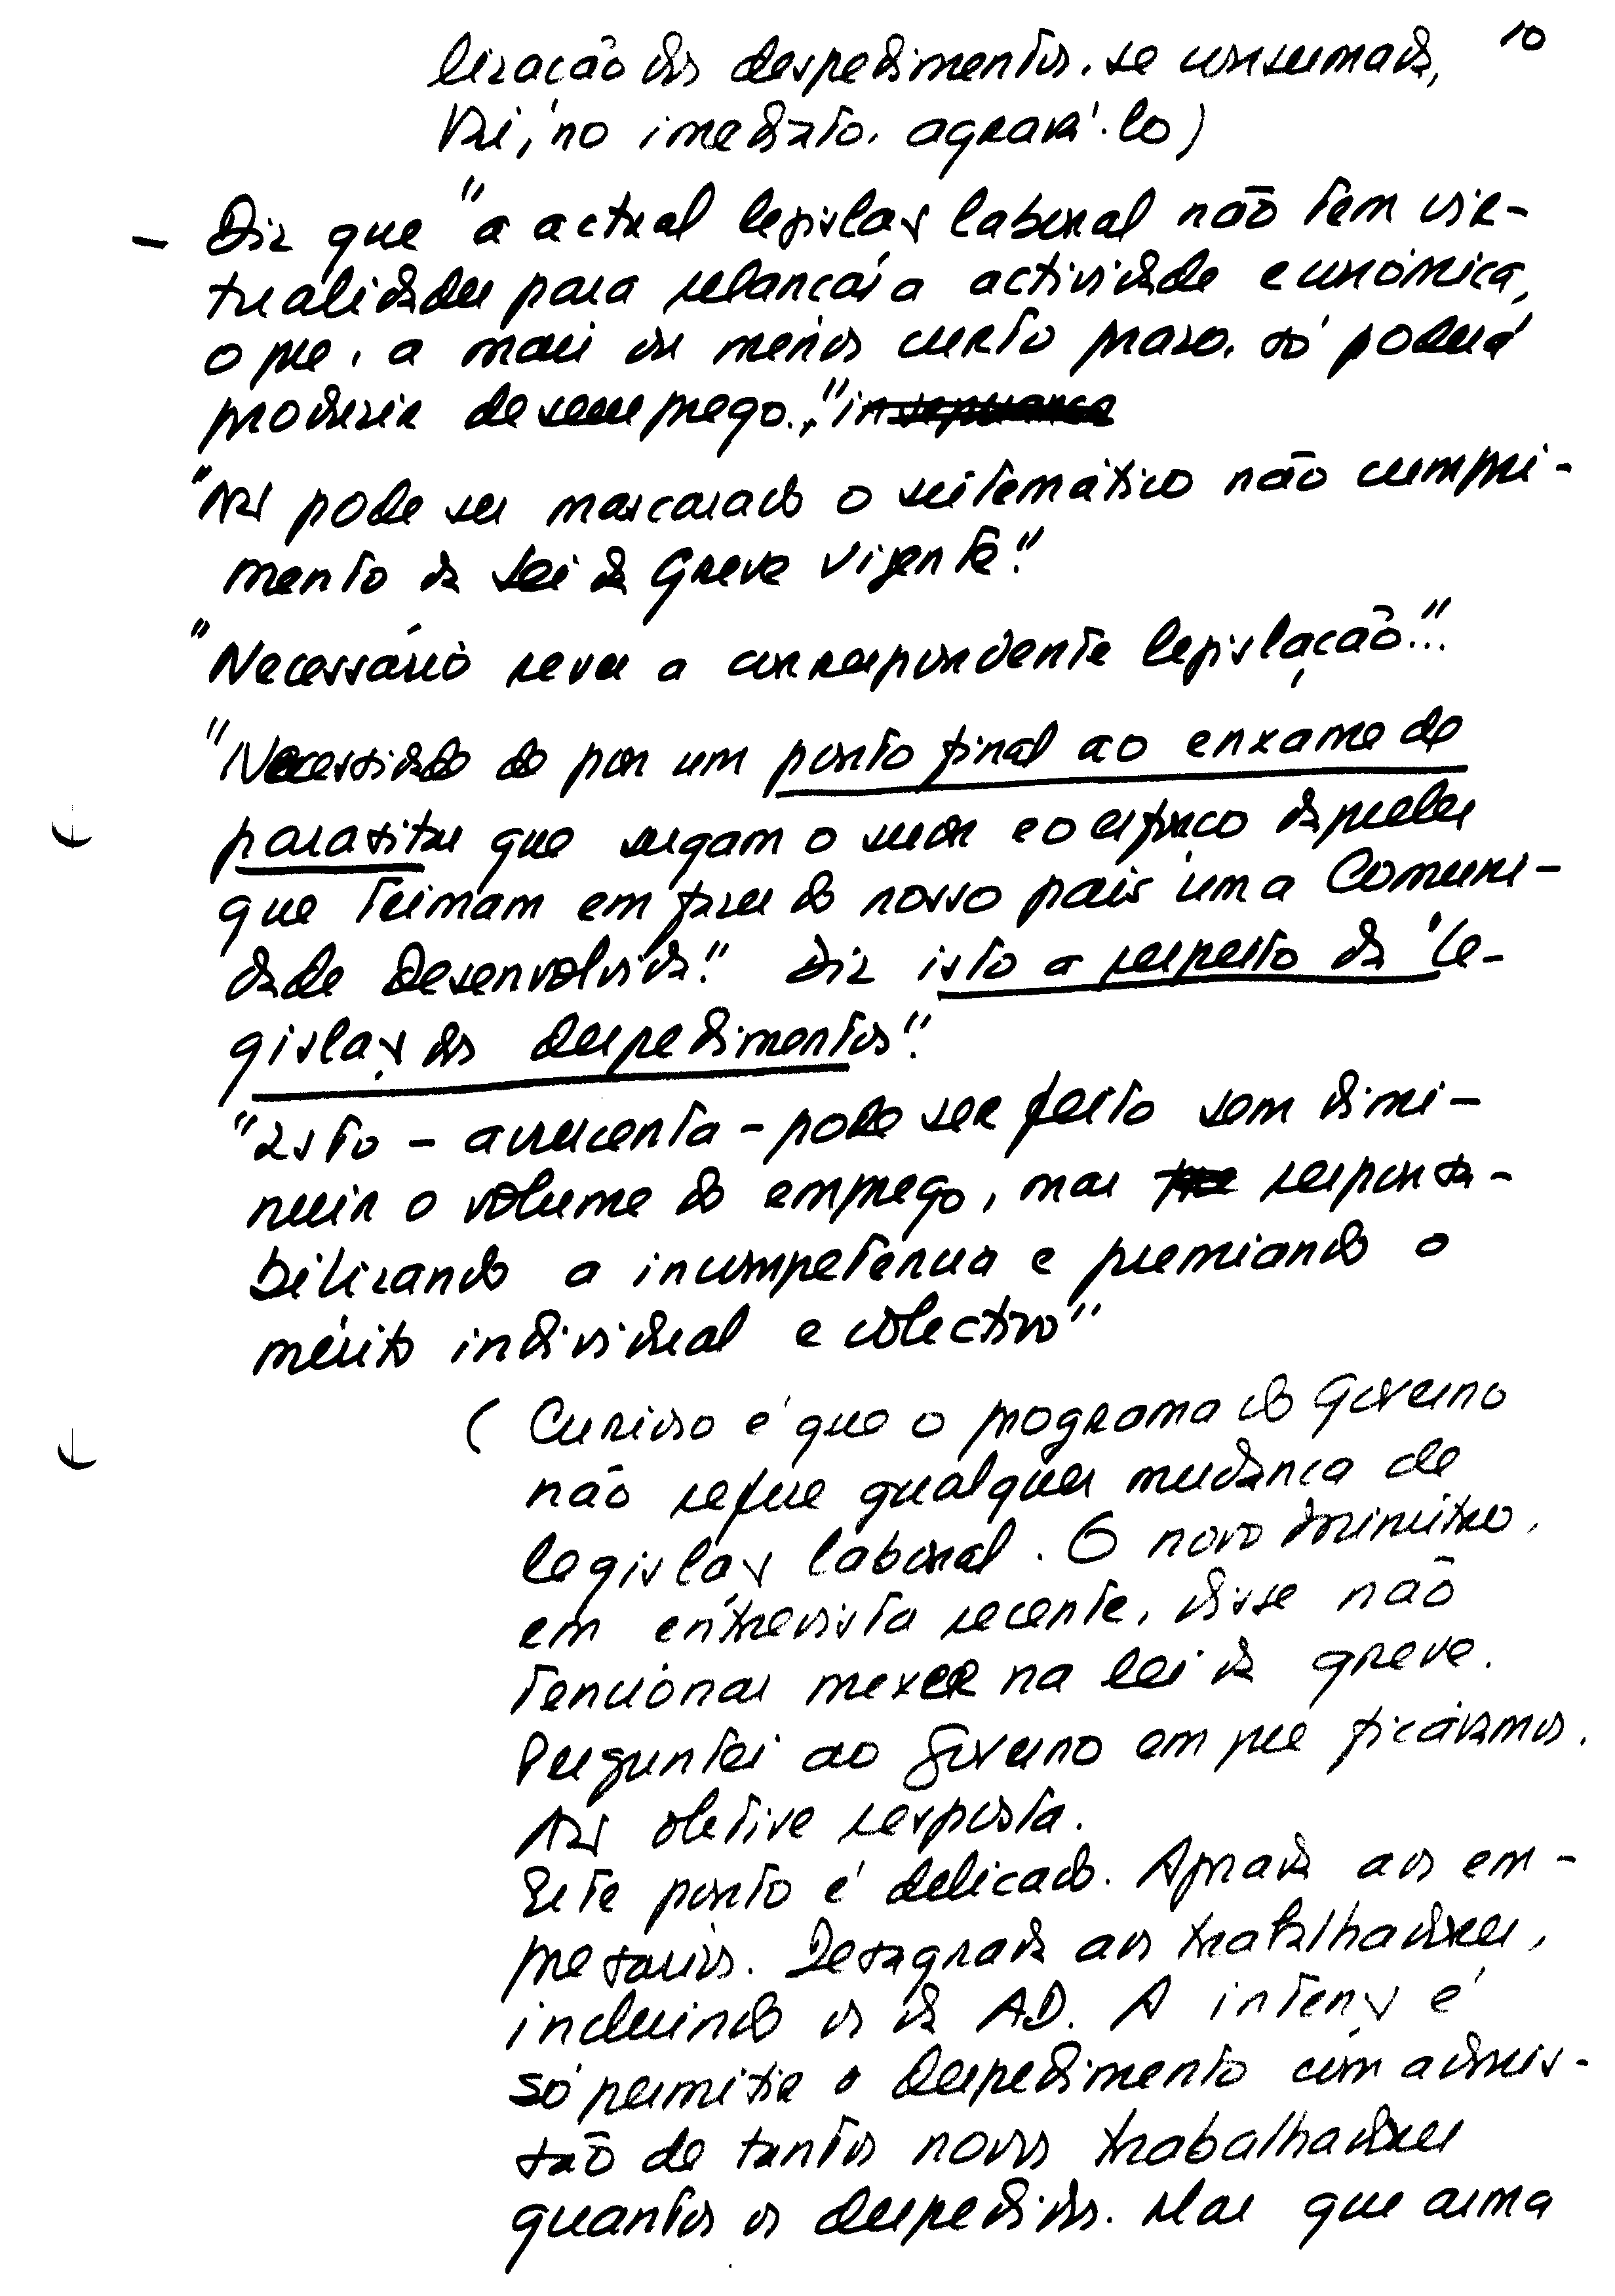 10
lização dos despedimentos, se consumada,
vai, no imediato, agravá-lo)
— Diz que "a actual legislação laboral não tem vir-
tualidades para relançar a actividade económica,
o que, a mais ou menos curto prazo, só poderá
produzir desemprego."
"Não pode ser mascarado o sistemático não cumpri-
mento da Lei da Greve vigente".
"Necessário rever a correspondente legislação"...
"Necessidade de pôr um ponto final ao enxame de
parasitas que sugam o suor e o esforço daqueles
que teimam em fazer do nosso país uma Comuni-
dade Desenvolvida". Diz isto a respeito da "le-
gislação dos despedimentos".
"Isto – acrescenta – pode ser feito sem dimi-
nuir o volume do emprego, mas responsa-
bilizando a incompetência e premiando o
mérito individual e colectivo"
(Curioso é que o programa do Governo
não refere qualquer mudança de
legislação laboral. O novo ministro,
em entrevista recente, disse não
tencionar mexer na lei da greve.
Perguntei ao Governo em que ficávamos.
Não obtive resposta.
Este ponto é delicado. Agrada aos em-
presários. Desagrada aos trabalhadores,
incluindo os da AD. A intenção é
só permitir o despedimento com admis-
são de tantos novos trabalhadores
quantos os despedidos. Mas que arma